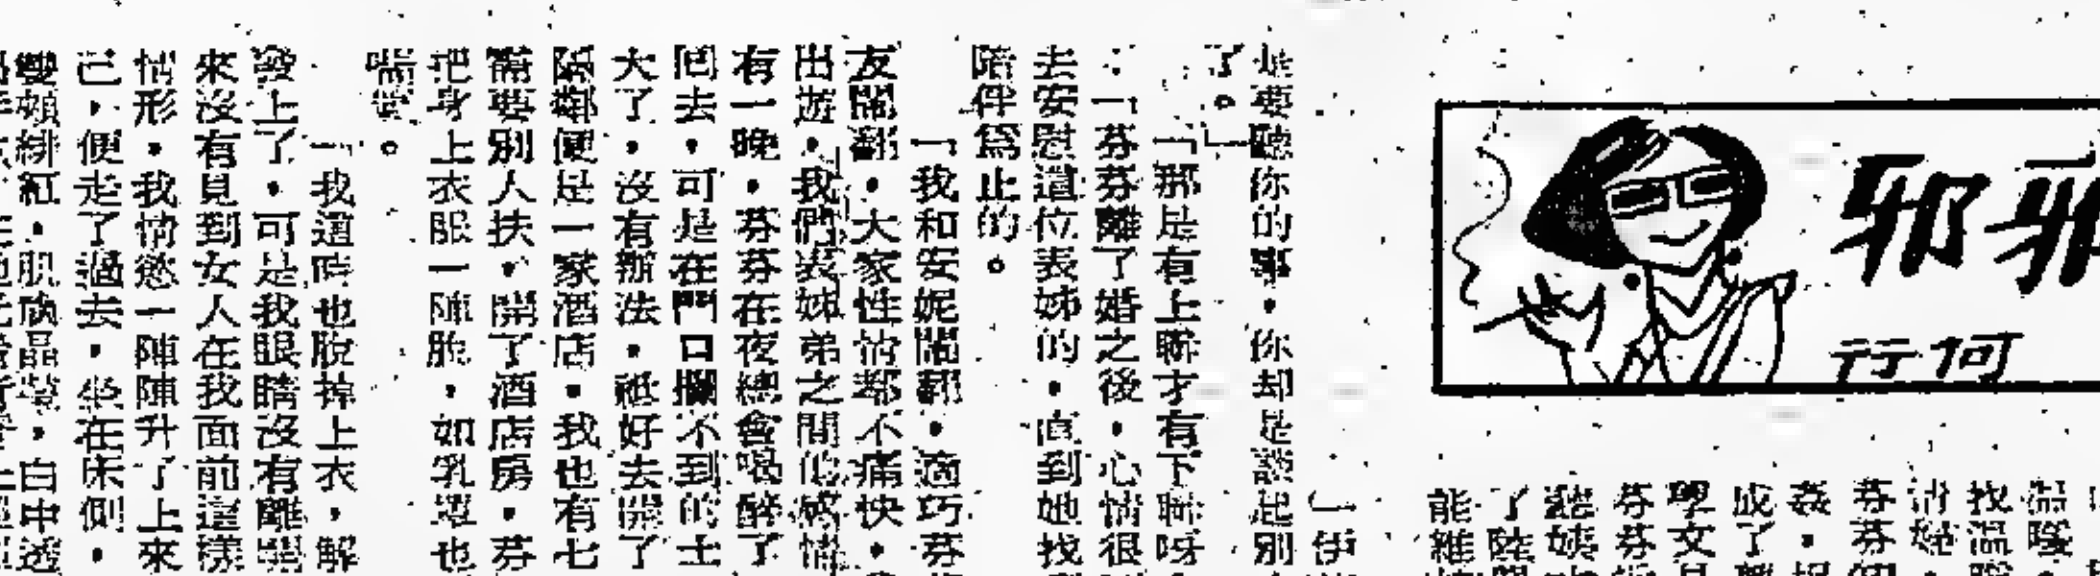 邪
行何
溫暖
找溫
芬芬
姦。
成了
學文
芬芬
聽姨
了陸
能維
是要聽你的事,你却是談起別
了。」
「那是有上聯才有下聯呀
:「芬芬離了婚之後,心情很
去安慰這位表姊的,直到她找
陪伴爲止的。
「我和安妮鬧翻,適巧芬
友鬧翻,大家性情都不痛快,
出遊,我們表姊弟之間的感情
有一晚,芬芬在夜總會喝醉了
回去,可是在門口攔不到的士
大了,沒有辦法,祇好去開了
隔鄰便是一家酒店,我也有七
需要別人扶,開了酒店房,芬
把身上衣服一陣脫,如乳罩也
喘聲。
「我這時也脫掉上衣,解
發上了,可是我眼睛沒有離開
來沒有見到女人在我面前這樣
情形,我情慾一陣陣升了上來
己,便走了過去,坐在床側,
雙頰緋紅,肌膚晶瑩,白中透